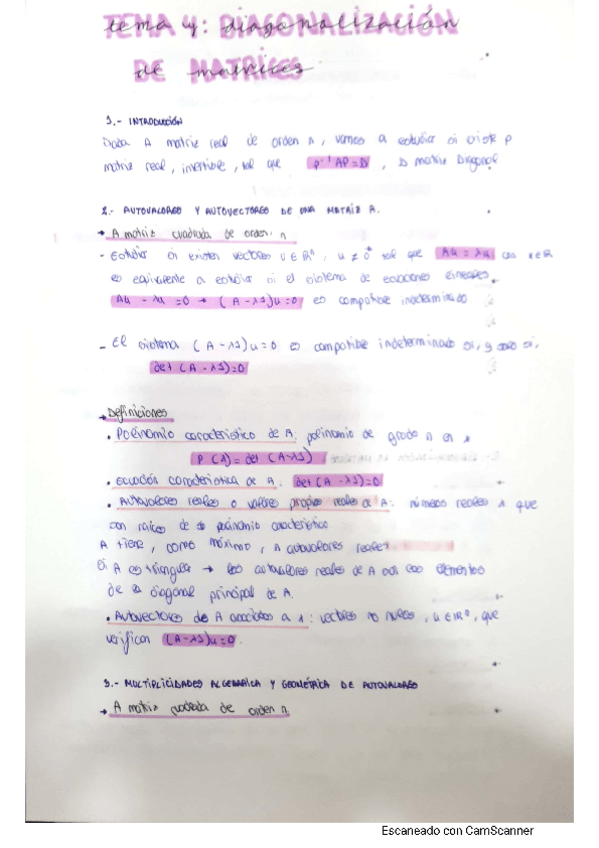 TEMA 4: DIAGONALIZACIÓN
DE MATRICES
1.- INTRODUCCIÓN
Dada A matriz real de orden n, vamos a estudiar si existe P
matriz real, invertible, tal que P⁻¹AP=D, D matriz Diagonal
2.- AUTOVALORES Y AUTOVECTORES DE UNA MATRIZ A.
→ A matriz cuadrada de orden n
- Estudiar si existen vectores u ∈ ℝⁿ, u ≠ 0 tal que Au = λu con λ∈ℝ
es equivalente a estudiar si el sistema de ecuaciones lineales
Au - λu = 0 → (A - λI)u = 0 es compatible indeterminado
- El sistema (A - λI)u = 0 es compatible indeterminado si, y solo si,
det (A - λI) = 0
→ Definiciones
• Polinomio característico de A: polinomio de grado n en λ
P(λ) = det (A-λI)
• Ecuación característica de A: det (A - λI) = 0
• Autovalores reales o valores propios reales de A: números reales λ que
son raíces de polinomio característico
A tiene, como máximo, n autovalores reales
Si A es triangular → los autovalores reales de A son los elementos
de la diagonal principal de A.
• Autovectores de A asociados a λ: vectores no nulos, u ∈ ℝⁿ, que
verifican (A - λI)u = 0.
3.- MULTIPLICIDADES ALGEBRAICA Y GEOMÉTRICA DE AUTOVALORES
→ A matriz cuadrada de orden n
Escaneado con CamScanner